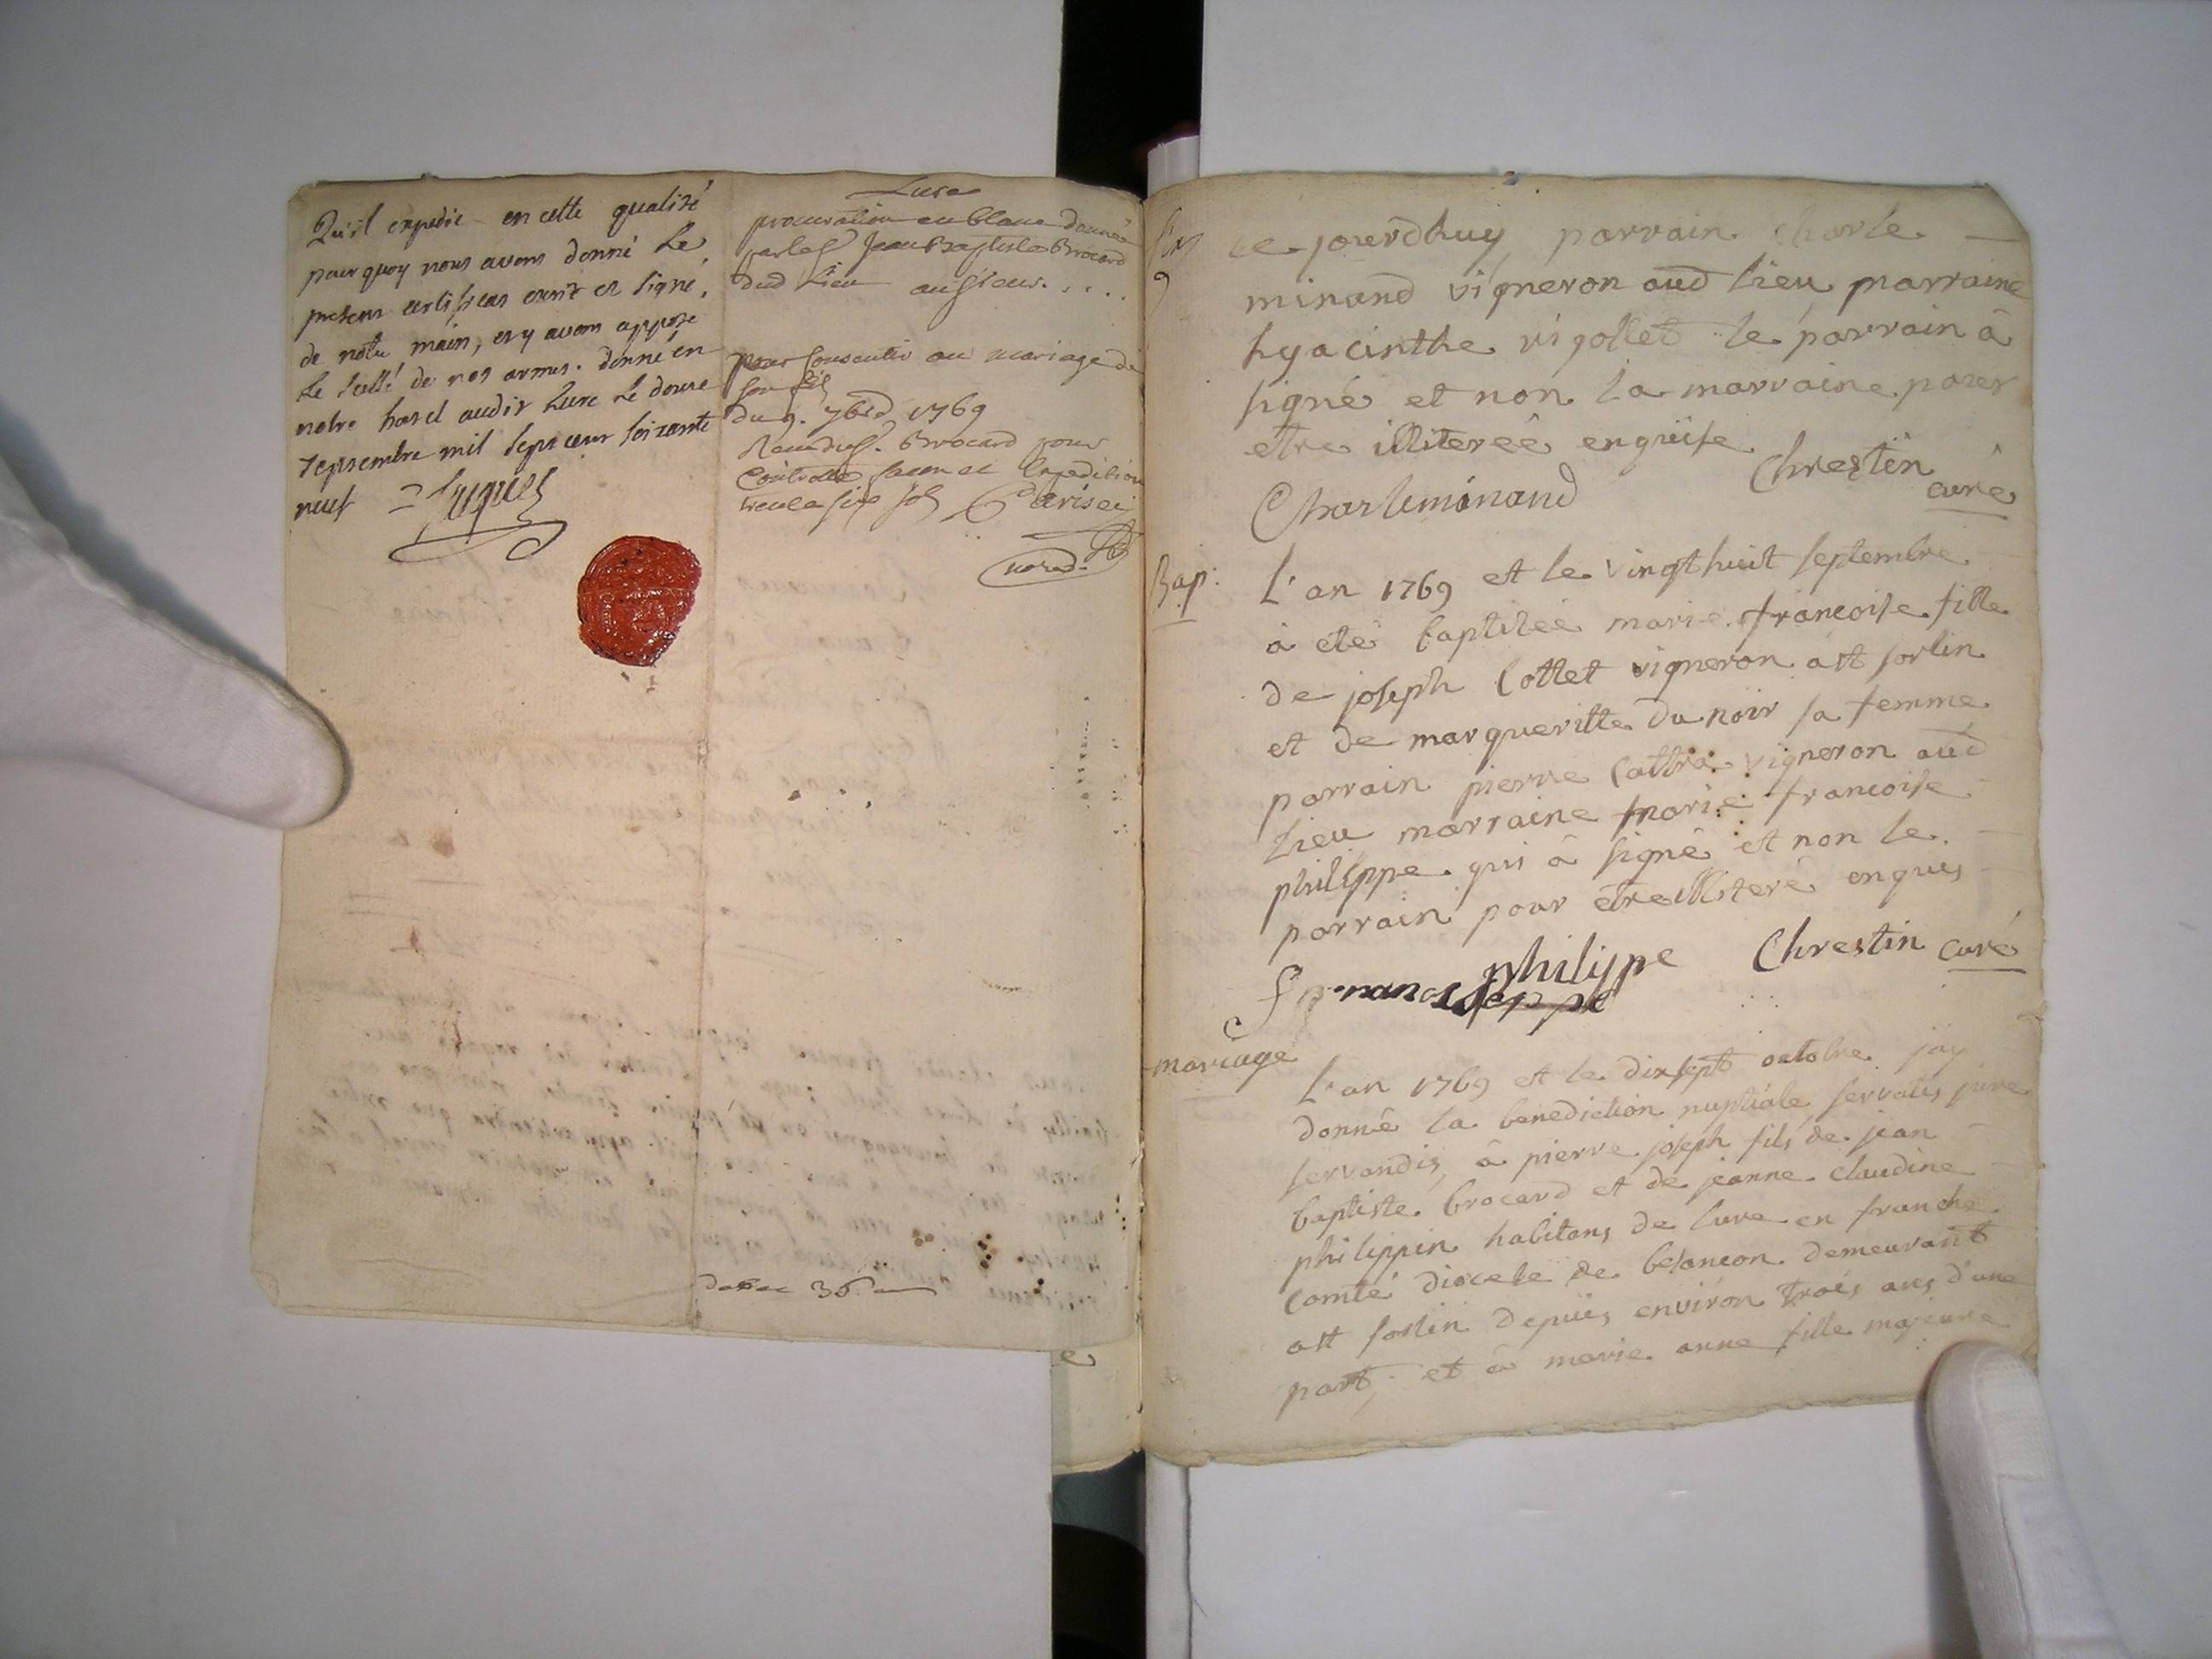 Qu'il expedie en cette qualité
pourquoy nous avons donné Le
present certificat ecrit et signé,
de notre main, et y avons apposé
Le scellé de nos armes. donné en
notre hotel audit Lure Le douze
septembre mil sept cent soixante
neuf
Lure
procuration en blanc donnée
par le S.r Jean Baptiste Brocard
dud Lieu au sieur . . . .
pour consentir au mariage de
son fils
du 9. 7bre 1769
Brocard pour
Controlle sceau et Expedition
trente six sols
ce jourdhuy parrain charle
minand vigneron aud lieu marraine
hyacinthe vigollet le parrain à
signé et non la marraine pour
etre illiterée enquise
Chrestin
curé
Charleminand
Bap:
L'an 1769 et le vingthuit septembre
à eté baptisée marie francoise fille
de joseph Cottet vigneron a st sorlin
et de margueritte du noir sa femme
parrain pierre Cottra vigneron aud
lieu marraine marie francoise
philippe qui à signé et non le
parrain pour etre illiteré enquis
philippe Chrestin curé
mariage
L'an 1769 et le dixsept octobre jay
donné la benediction nuptiale servatis jure
servandis, à pierre joseph fils de jean
baptiste brocard et de jeanne claudine
philippin habitans de lure en franche
comté diocese de besancon demeurant
a st sorlin depuis environ trois ans d'une
part, et à marie anne fille majeure